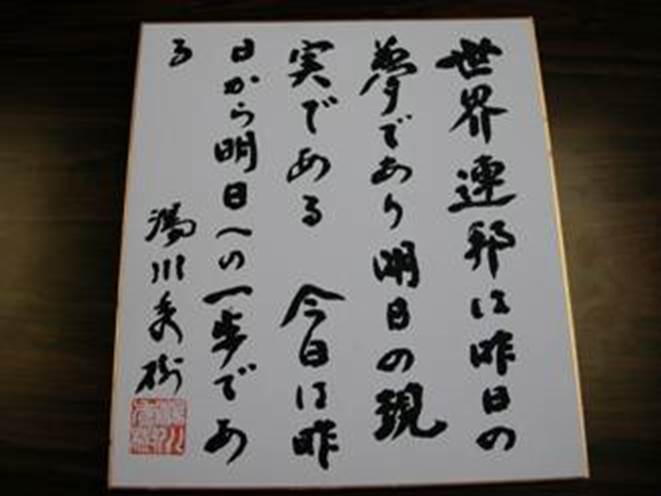 世界連邦は昨日の
夢であり明日の現
実である 今日は昨
日から明日への一歩であ
る
湯川秀樹